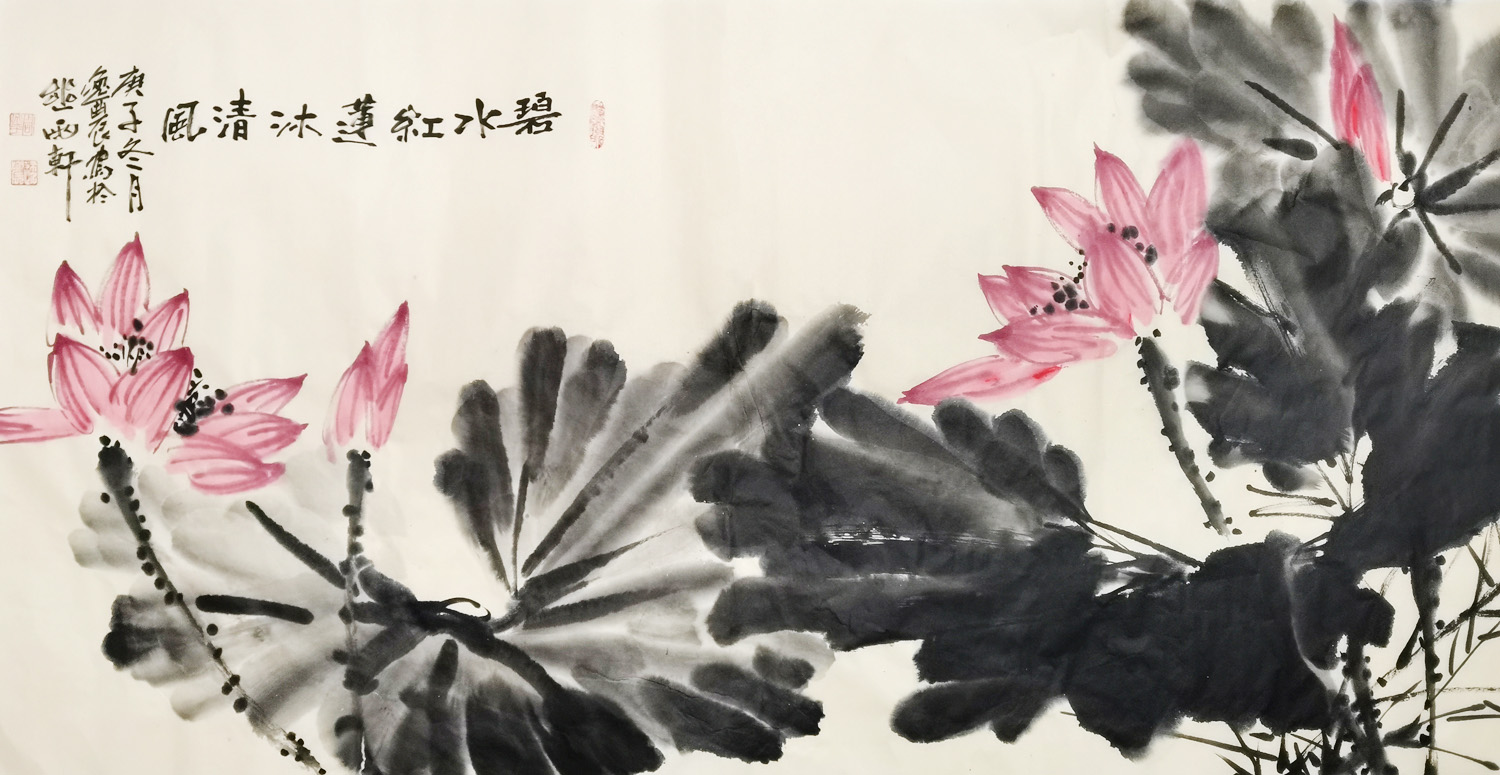 碧水紅蓮沐清風
庚子冬月
逸農寫於
雨軒